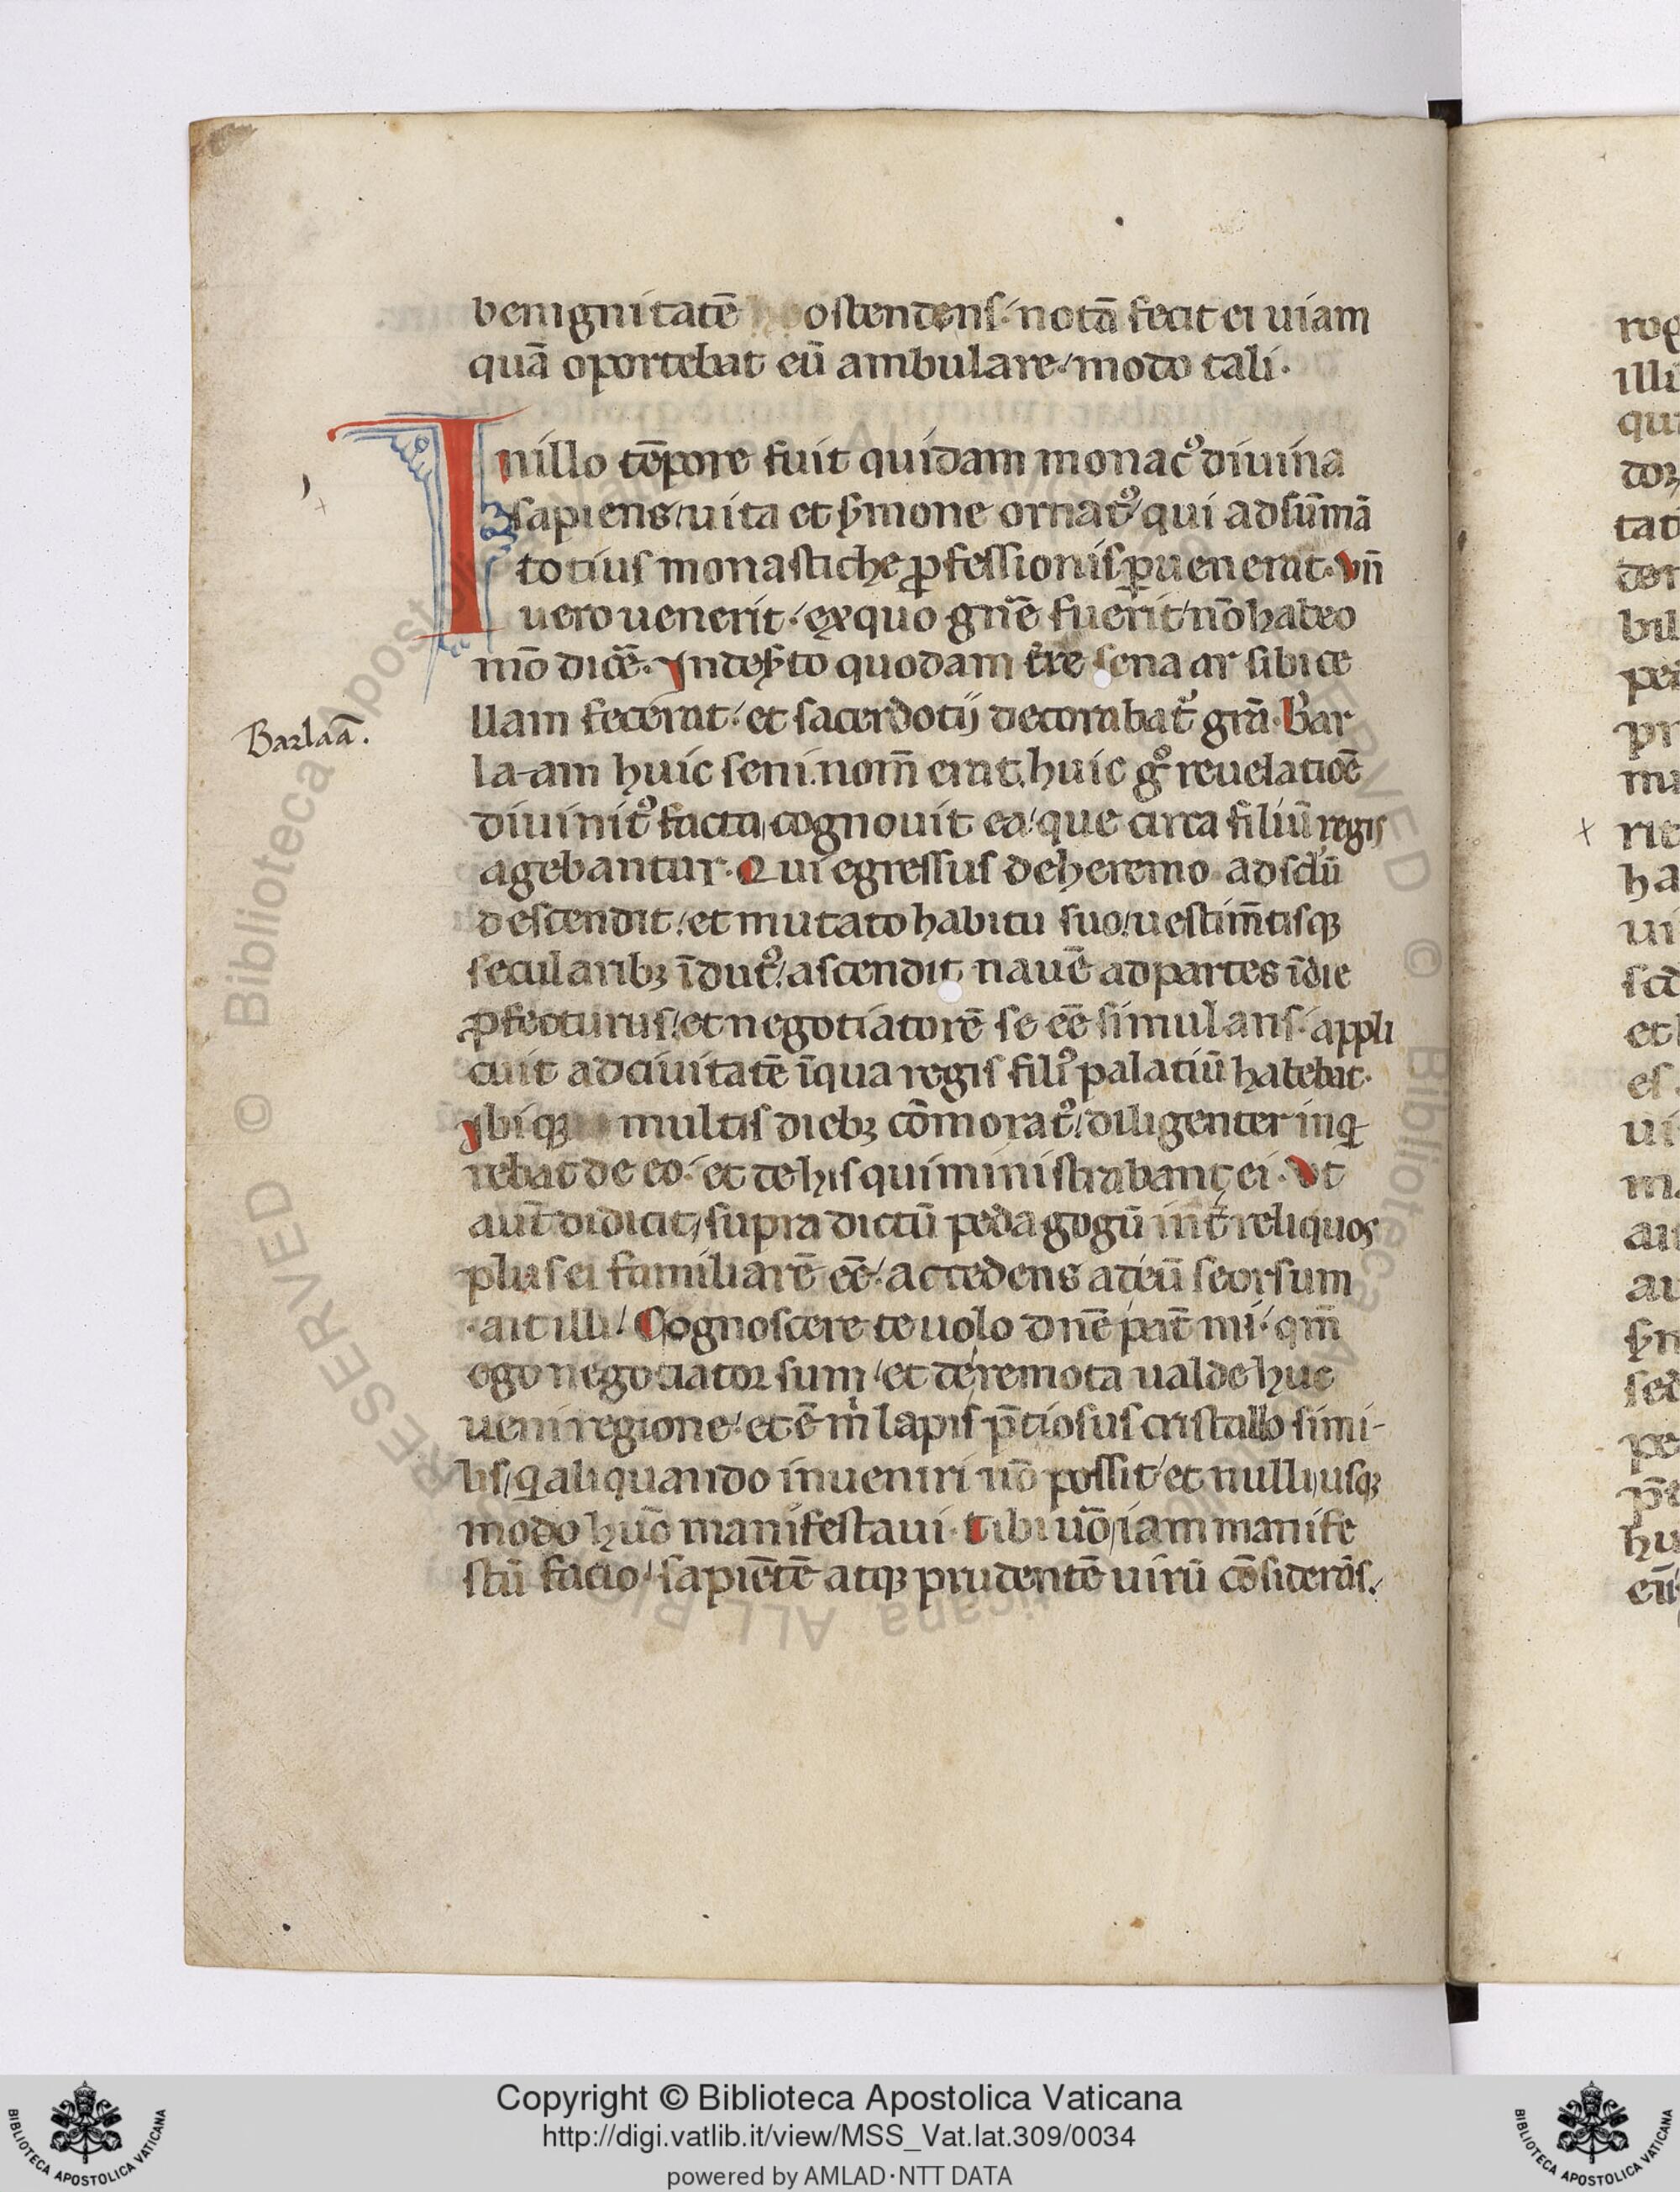 benignitatē ostendens notā fecit ei uiam
quā oportebat eū ambulare modo tali.
In illo tēpore fuit quidam monac᷒ diuina
sapiens uita et s̄mone ornat᷒ qui ad sūmā
totius monastiche ꝓfessionis ꝑuenerat. Vn̄
uero uenerit ex quo gn̄e fuerit nō habeo
mō dicē. In des̄to quodam t̄re sena ar sibi ce
llam fecerat et sacerdotij decorabat᷒ gr̄a. Bar
la-am huic seni nom̄ erat, huic g° reuelatiōē
diuinit᷒ facta cognouit ea que circa filiū regis
agebantur. Qui egressus de heremo ad sclū
descendit et mutato habitu suo uestim̄tisqꝫ
secularibꝫ īdut᷒ ascendit nauē ad partes īdie
ꝓfecturus et negotiatorē se eē simulans appli
cuit ad ciuitatē ī qua regis fili᷒ palatiū habebat.
Ibiqꝫ multis diebꝫ cōmorat᷒ diligenter inq̇
rebat de eo et de his qui ministrabant ei. Vt
aut̄ didicit supra dictū pedagogū int̄ reliquos
plus ei familiarē eē accedens ad eū seorsum
ait illi. Cognoscere te uolo dn̄e pat̄ mi qm̄
ego negotiator sum et de remota ualde huc
ueni regione et ē m̄ lapis p̄tiosus cristallo simi-
lis q̇ aliquando inueniri nō possit et nulli usqꝫ
modo huō manifestaui. Tibi uō iam manife
stū facio sapiētē atqꝫ prudentē uirū cōsiderās.
Barlaā.
rog
illu
qu
dor
tat
der
bil
per
pr
mi
rie
ha
ui
scd
et
es
ui
ma
au
au
sed
pe
hu
eū
Copyright © Biblioteca Apostolica Vaticana
http://digi.vatlib.it/view/MSS_Vat.lat.309/0034
powered by AMLAD·NTT DATA
BIBLIOTECA APOSTOLICA VATICANA
BIBLIOTECA APOSTOLICA VATICANA